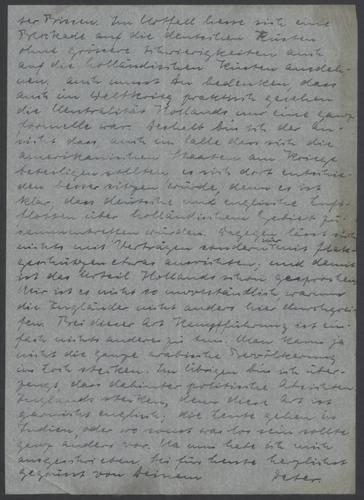 ter Prisen. Im Notfall liesse sich eine
Blockade auf die deutschen Küsten
ohne grössere Schwierigkeiten auch
auf die holländischen Küsten ausdeh-
nen, auch musst Du bedenken, dass
auch im Weltkrieg praktisch gesehen
die Neutralität Hollands nur eine ganz
formelle war. Deshalb bin ich der An-
sicht dass, auch im Falle dass sich die
amerikanischen Staaten am Kriege
beteiligen sollten es sich dort entschie-
den besser sitzen würde, denn es ist
klar, dass deutsche und englische Luft-
flotten über holländischem Gebiet zu-
sammentreffen würden. Dagegen lässt sich
nichts mit Verträgen sondern nur mit Flak-
geschützen etwas ausrichten, und damit
ist das Urteil Hollands schon gesprochen.
Mir ist es nicht so unverständlich warum
die Engländer nicht anders hier durchgrei-
fen. Bei dieser Art Kampfführung ist ein-
fach nichts anderes zu tun. Man kann ja
nicht die ganze arabische Bevölkerung
ins Loch stecken. Im Übrigen bin ich über-
zeugt, dass dahinter politische Absichten
Englands stecken, denn diese Art ist
garnicht englisch, die Leute gehen in
Indien, oder wo sonst was los sein sollte
ganz anders vor. Na nun habe ich mich
ausgeschrieben, sei für heute herzlichst
gegrüsst von Deinem Peter.